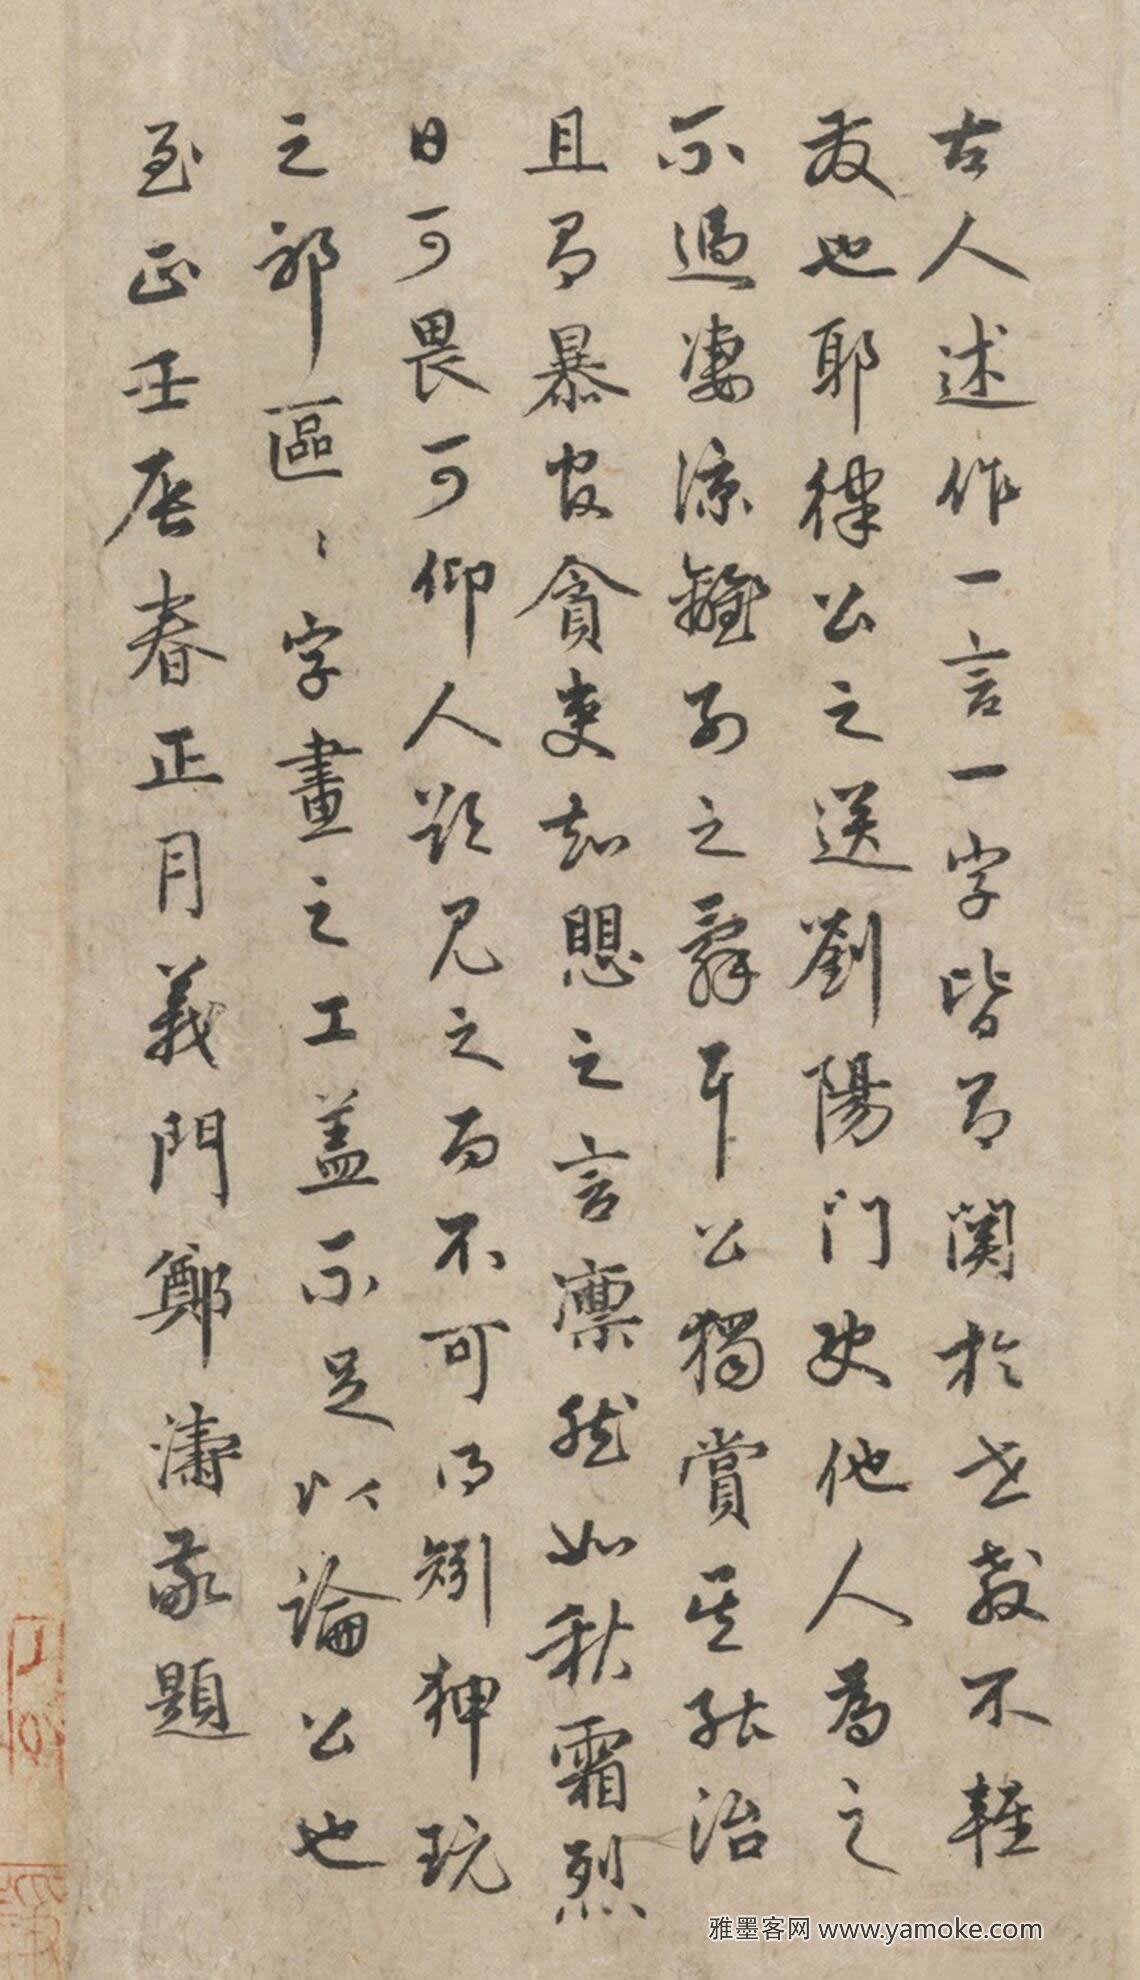 古人述作一言一字皆有関於世教不輕
發也耶律公之送劉陽门史他人為之
不過淒涼離別之辭耳公獨賞其能治
且有暴官貪吏知愳之言凛然如秋霜烈
日可畏可仰人望見之而不可得矧狎玩
之邪區〻字畫之工盖不足以論公也
至正壬辰春正月義門鄭濤敬題
雅墨客网 www.yamoke.com